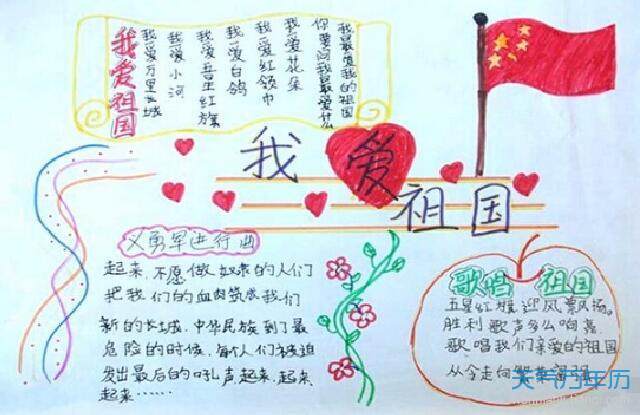 我爱祖国
我爱万里长城
我爱小河
我爱五星红旗
我爱白鸽
我爱红领巾
我爱花朵
你要问我最爱什么
我最爱我的祖国
我爱
祖国
义勇军进行曲
起来,不愿做奴隶的人们
把我们的血肉筑成我们
新的长城,中华民族到了最
危险的时候,每个人们被迫
发出最后的吼声,起来,起来,
起来……
歌唱 祖国
五星红旗迎风飘扬。
胜利歌声多么响亮
歌唱我们亲爱的祖国
从今走向
天气万年历